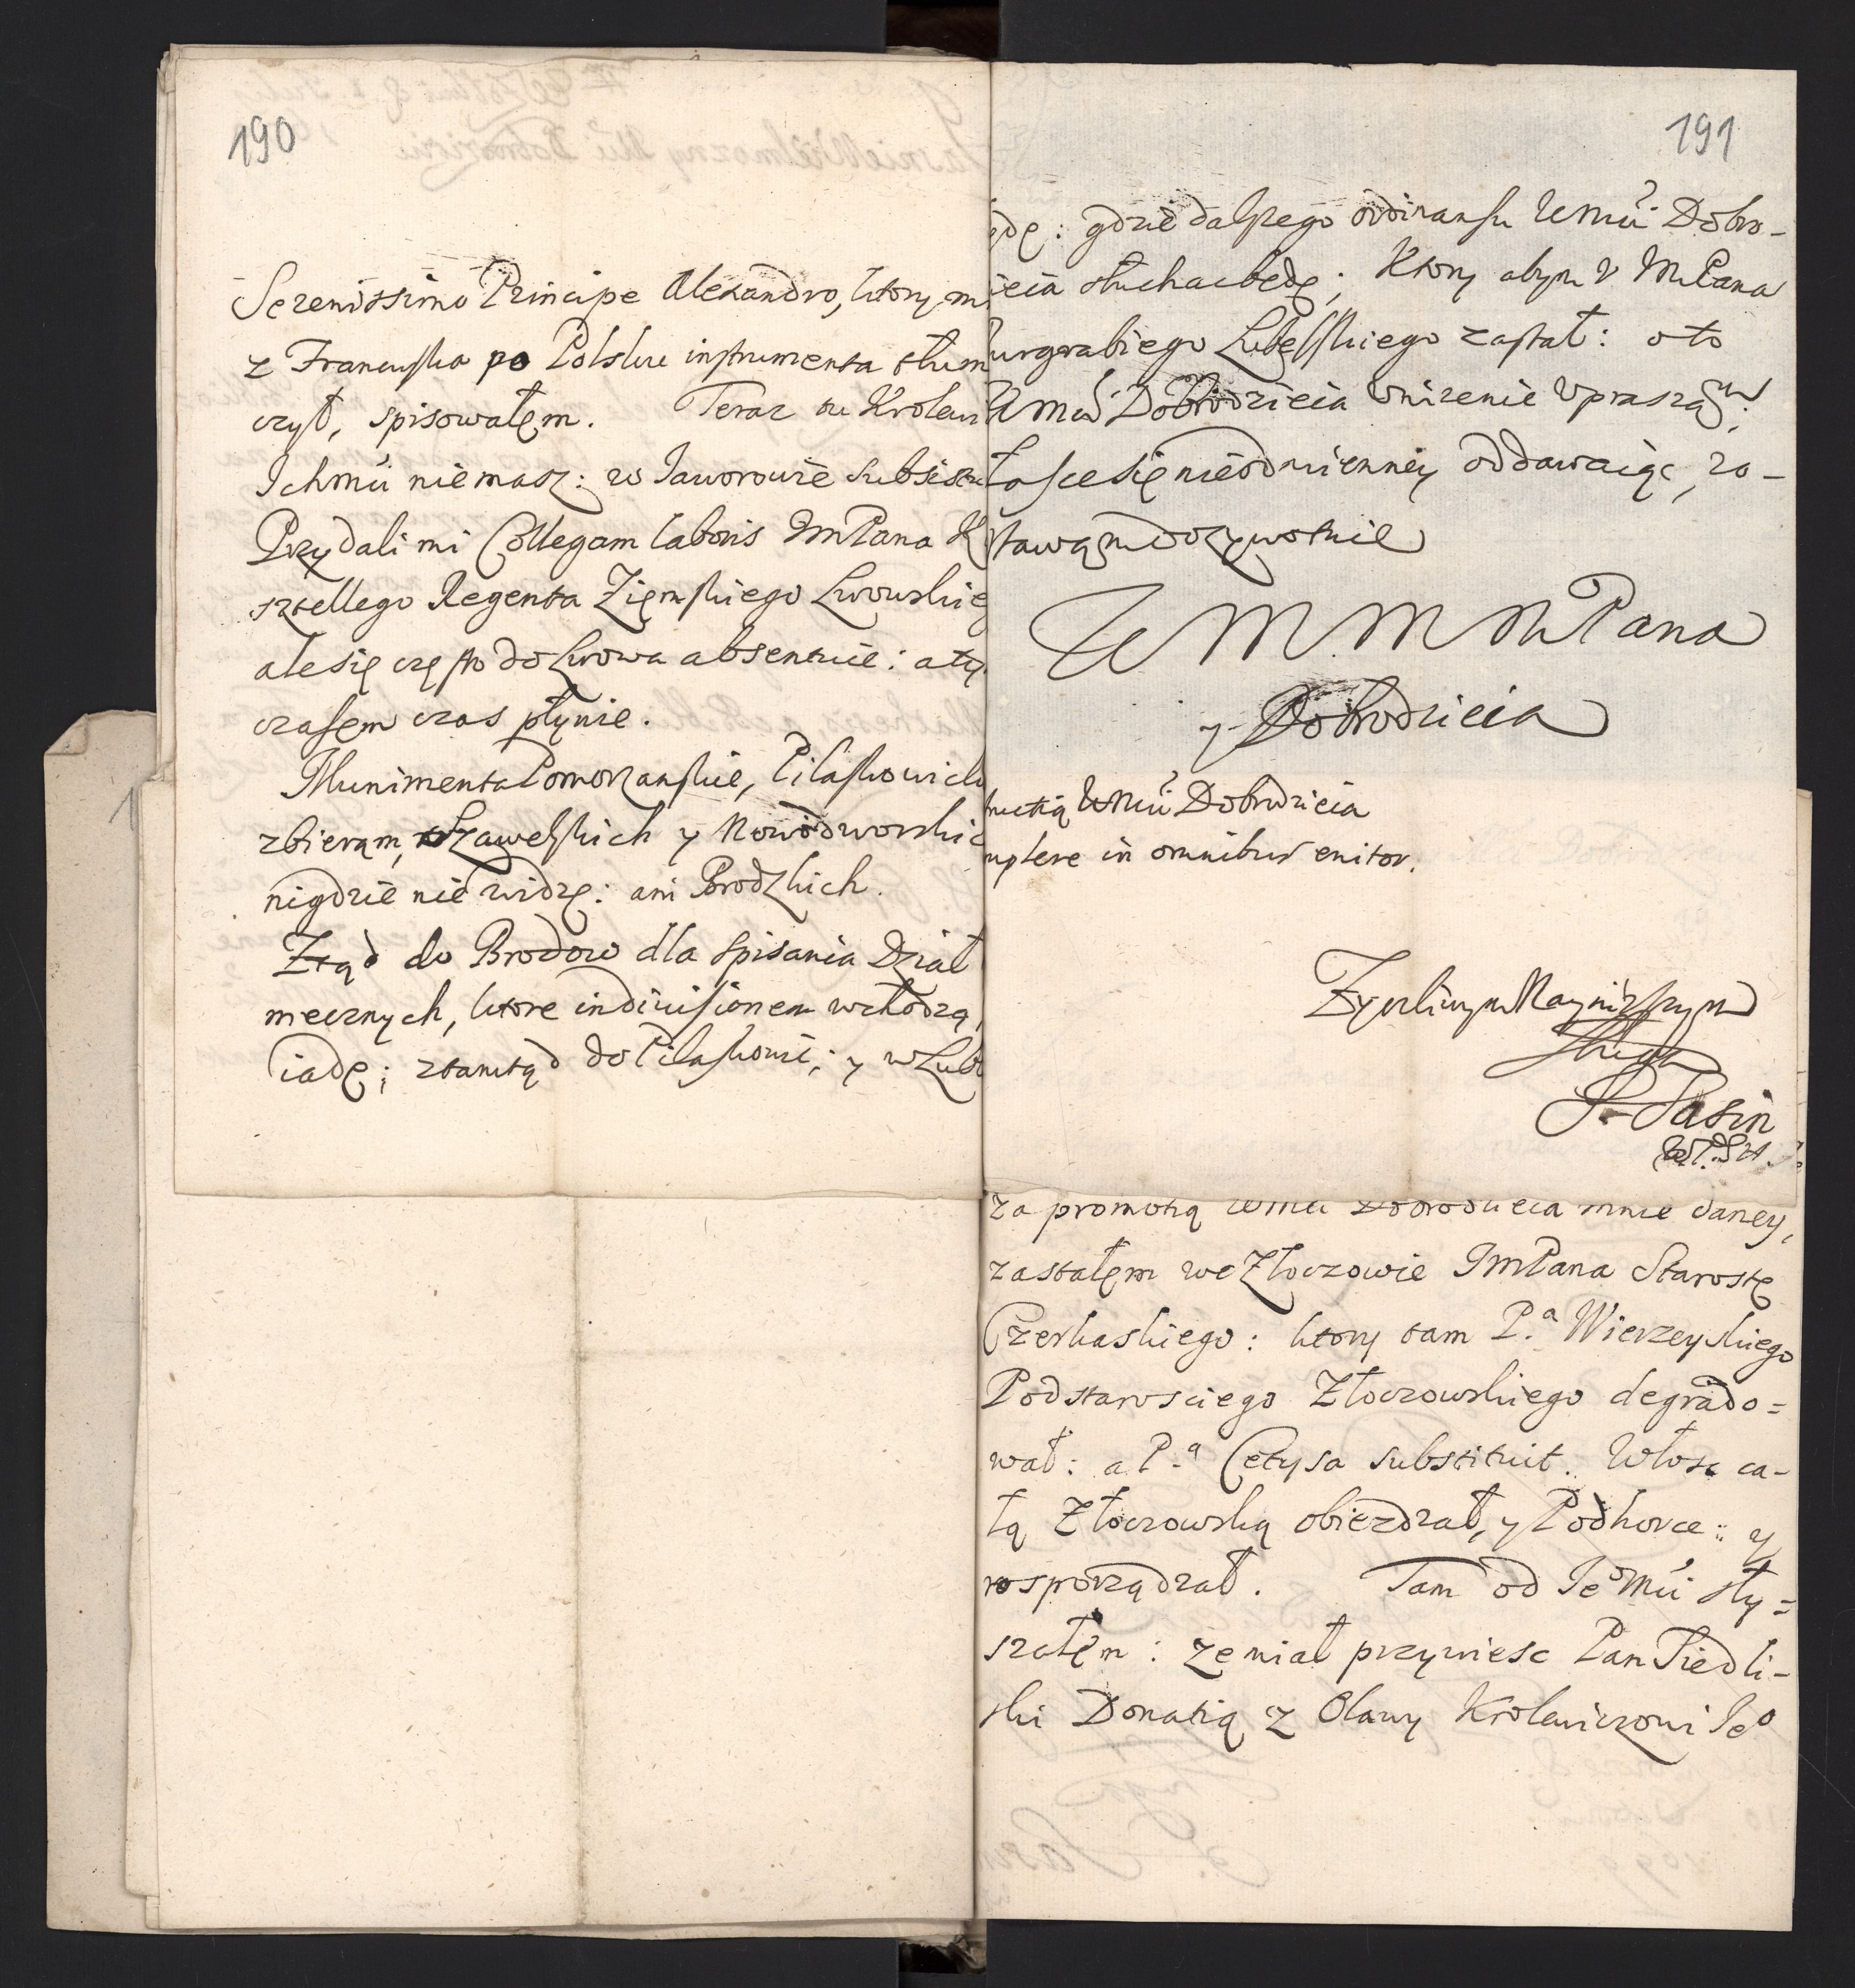 190
Serenissimo Principe Alexandro, ktory m
z Francuska po Polsku instrumenta tłum
czył, spisowałem. Teraz tu Krolewi
Ichmći niemasz: w Jaworowie subsist
Przydali mi Collegam laboris ImPana K
sztellego Regenta Ziemskiego Lwowskieg
ale się często do Lwowa absentuie: a ty
czasem czas płynie.
Munimenta Pomorzanskie, Pilaskowick
zbieram, Szawelskich y Nowodworskic
nigdzie nie widzę: ani Brodzkich.
Ztąd do Brodow dla spisania Dział
mecznych, ktore in divisionem wchodzą,
iadę; ztamtąd do Pilaskowic; y w Lubl
191
ędę: gdzie dalszego ordinansu WMći Dobro-
ieia słuchac będę; Ktory abym v MPana
urgrabiego Lubelskiego zastał: o to
WMći Dobrodzieia vnizenie vpraszam:
Łasce się nieodmienney oddawaiąc, zo-
stawam dozywotnie
W M M MPana
y Dobrodzieia
ructią WMći Dobrodzieia
mplere in omnibus enitor.
Zyczliwym Naynizszym
Sługą
P. Sasin
za promotią WMći Dobrodzieia mnie daney,
zastałem we Złoczowie ImPana Starostę
Czerkaskiego: ktory tam P.a Wierzeyskiego
Podstarosciego Złoczowskiego degrado=
wał: a P.a Cetysa substituit. Włosc ca-
łą Złoczowską obiezdzał, y Podhorce: y
rosporządzał. Tam od Ieo Mći sły=
szałem: ze miał przyniesc Pan Siedli-
ski Donatią z Olawy Krolewiczowi Ieo